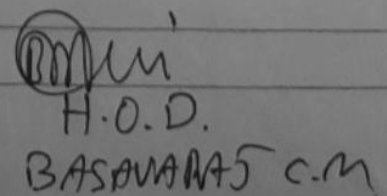 H.O.D.
BASAVARAJ C.M